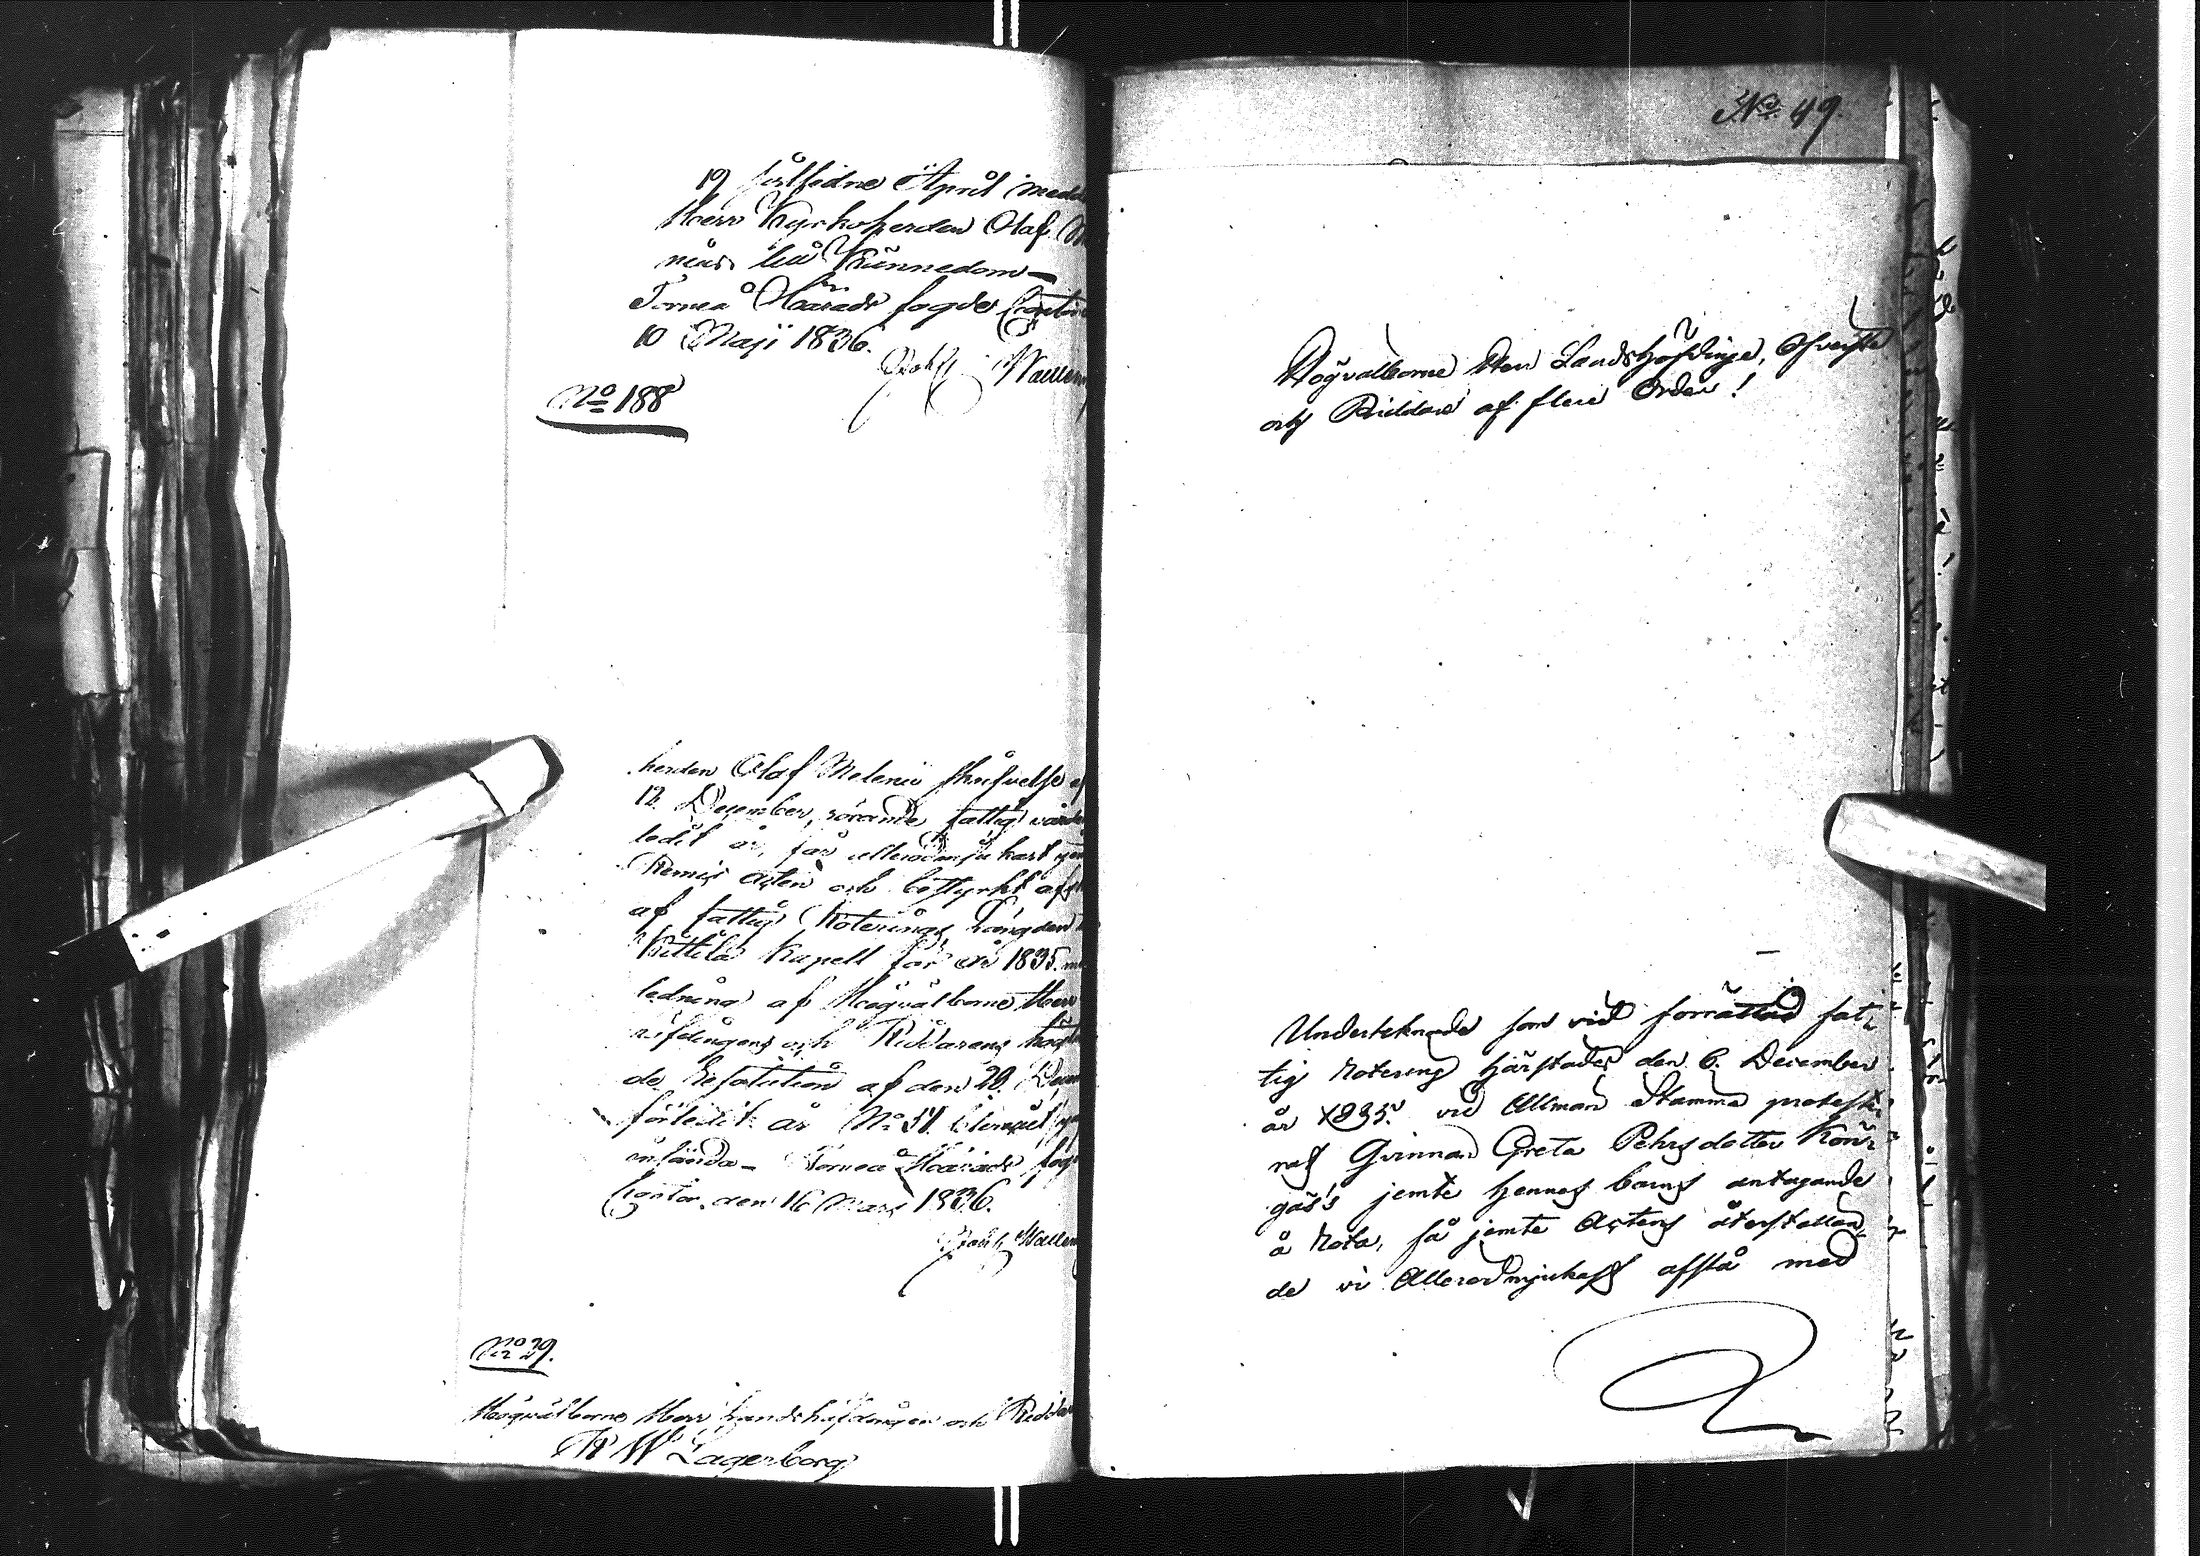 19 sistledne April medd
Herr Kyrkoherden Olaf M
närs till Kännedom
Torneå Härads fogde Contoir
10 Maji 1836.
Wallen
No 188
herden Olaf Melenii skrifvelse af
12 December, rörande fattig vården
ledit år, får allerödmjukast gen
Remiss Acten och bestyrkt afsk
af fattig Roterings Längden
Kittilä Kapell för år 1835. m
ledning af Högvälborne Herr
höfdingens och Riddarens högt
de Resolution af den 20. Decem
förledit år No 51.
insända - Torneå Härads fog
Contor den 16 Mars 1836.
Wallen
No 29.
Högvälborne Herr Landshöfdingen och Riddar
R W Lagerborg
No 49.
Högvälborne Herr Landshöfdinge, Öfverste
och Riddare af flere Orden!
Undertecknade som vid förrättad fat-
tig Rotering härstädes den 6. December
år 1835. vid Allmän Stämma proteste-
rat Qvinnan Greta Pehrs dotter Kön-
gäs's jemte hennes barns antagande
å Rota, få jemte Actens återstellan-
de vi Allerödmjukast afstå med